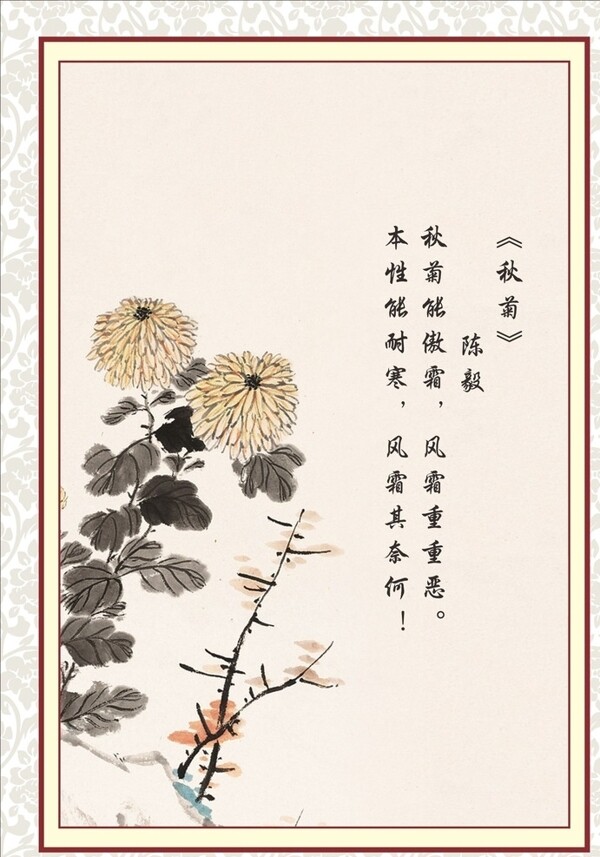 《秋菊》
陈毅
秋菊能傲霜，风霜重重恶。
本性能耐寒，风霜其奈何！